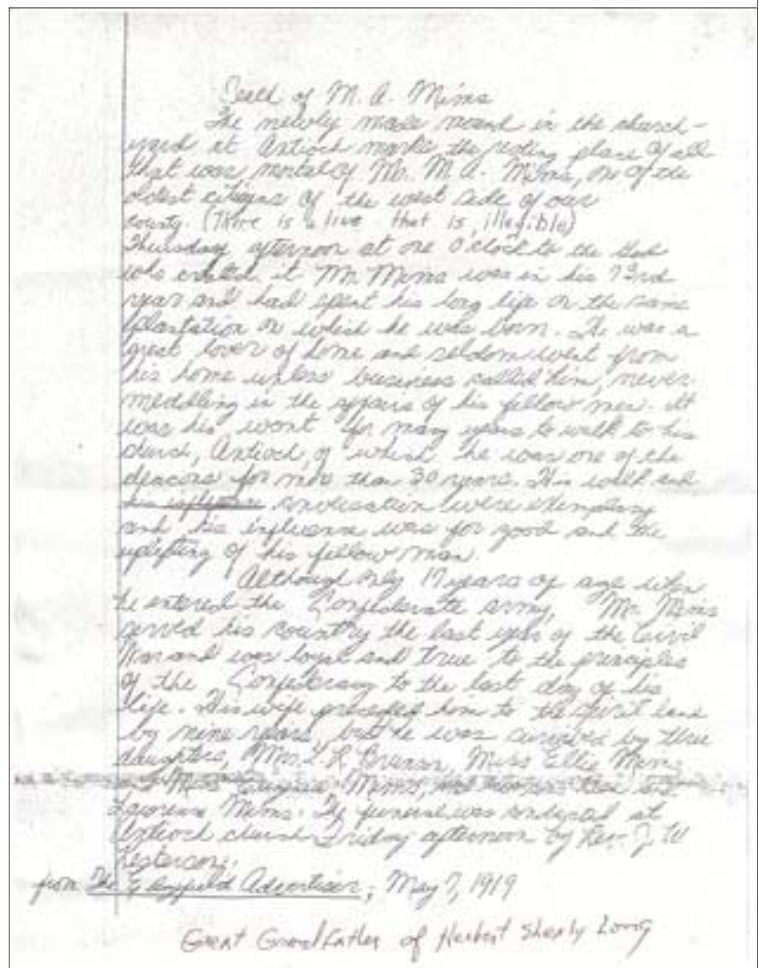 Death of M. A. Mims
The newly made mound in the church-
yard at Antioch marks the resting place of all
that was mortal of Mr. M. A. Mims, one of the
oldest citizens of the west side of our
county. (There is a line that is illegible)
Thursday afternoon at one o'clock to the God
who created it Mr. Mims was in his 73rd
year and had spent his long life on the same
plantation on which he was born. He was a
great lover of home and seldom went from
his home unless business called him, never
meddling in the affairs of his fellow men. It
was his wont for many years to walk to his
church, Antioch, of which he was one of the
deacons for more than 30 years. His walk and
his influence conversation were exemplary
and his influence was for good and the
uplifting of his fellow man.
Although only 17 years of age when
he entered the Confederate army, Mr. Mims
served his country the last year of the Civil
War and was loyal and true to the principles
of the Confederacy to the last day of his
life. His wife preceded him to the spirit land
by nine years, but he was survived by three
daughters, Mrs. L Miss Ellie Mims
and Miss Mims, and
Mims. The funeral was conducted at
Antioch church Friday afternoon by Rev. J. W

from The Advertiser, May 7, 1919
Great Grandfather of Herbert Long